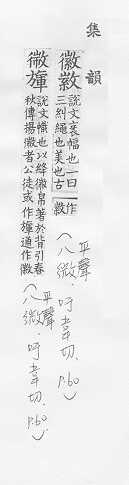 集韻
徽
說文衺幅也一曰
三糾繩也美也古
作
(平聲
八微.吁韋切.P.60)
說文幟也以絳徽帛著於背引春
秋傳揚徽者公徒或作通作徽
(平聲
八微.吁韋切.P.60.)